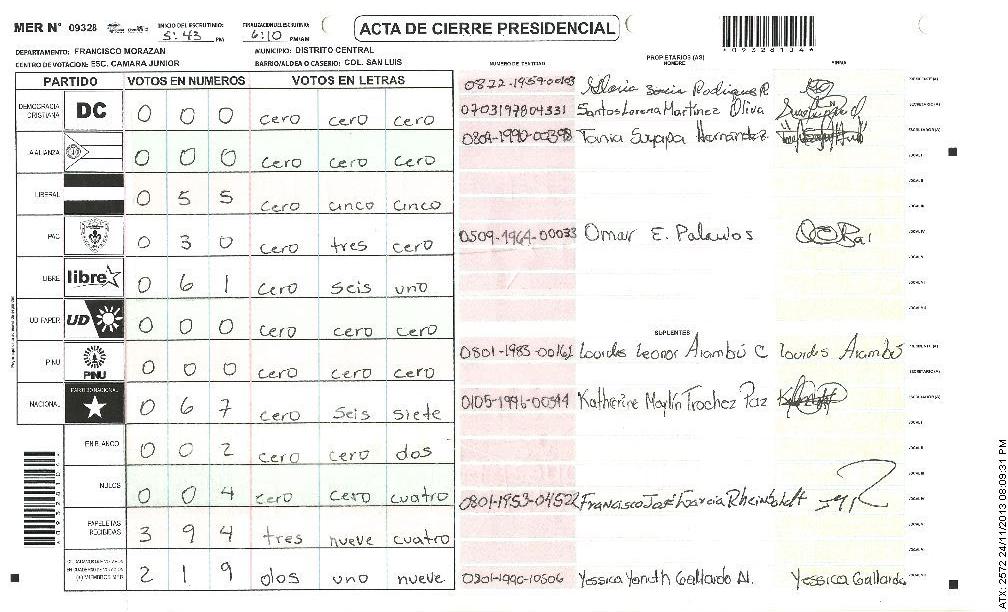 MER N° 09328 INICIO DEL ESCRUTINIO: 5:43 PM FINALIZACION ESCRUTINIO: 6:10 PM/AM
ACTA DE CIERRE PRESIDENCIAL
DEPARTAMENTO: FRANCISCO MORAZAN MUNICIPIO: DISTRITO CENTRAL
CENTRO DE VOTACION: ESC. CAMARA JUNIOR BARRIO/ALDEA O CASERIO: COL. SAN LUIS
PARTIDO VOTOS EN NUMEROS VOTOS EN LETRAS
DEMOCRACIA CRISTIANA DC 0 0 0 cero cero cero
LA ALIANZA 0 0 0 cero cero cero
LIBERAL 0 5 5 cero cinco cinco
PAC 0 3 0 cero tres cero
LIBRE libre 0 6 1 cero seis uno
UD FAPER UD 0 0 0 cero cero cero
PINU PINU 0 0 0 cero cero cero
NACIONAL PARTIDO NACIONAL 0 6 7 cero seis siete
EN BLANCO 0 0 2 cero cero dos
NULOS 0 0 4 cero cero cuatro
PAPELETAS RECIBIDAS 3 9 4 tres nueve cuatro
2 1 9 dos uno nueve
NUMERO DE IDENTIDAD PROPIETARIOS (AS) NOMBRE FIRMA
0822-1959-00103 Gloria Sonia Rodriguez R.
0703197804331 Santos Lorena Martínez Oliva
0801-1990-00398 Tania Suyapa Hernandez
0509-1964-00033 Omar E. Palacios
SUPLENTES
0801-1985-00161 Lourdes Leonor Arambú C Lourdes Arambú
0105-1996-00544 Katherine Maylin Trochez Paz
0801-1953-04522 Francisco José Garcia Rheinboldt
0801-1990-10506 Yessica Yamith Gallardo N. Yessica Gallardo
ATX: 2572 24/11/2013 08:09:31 PM